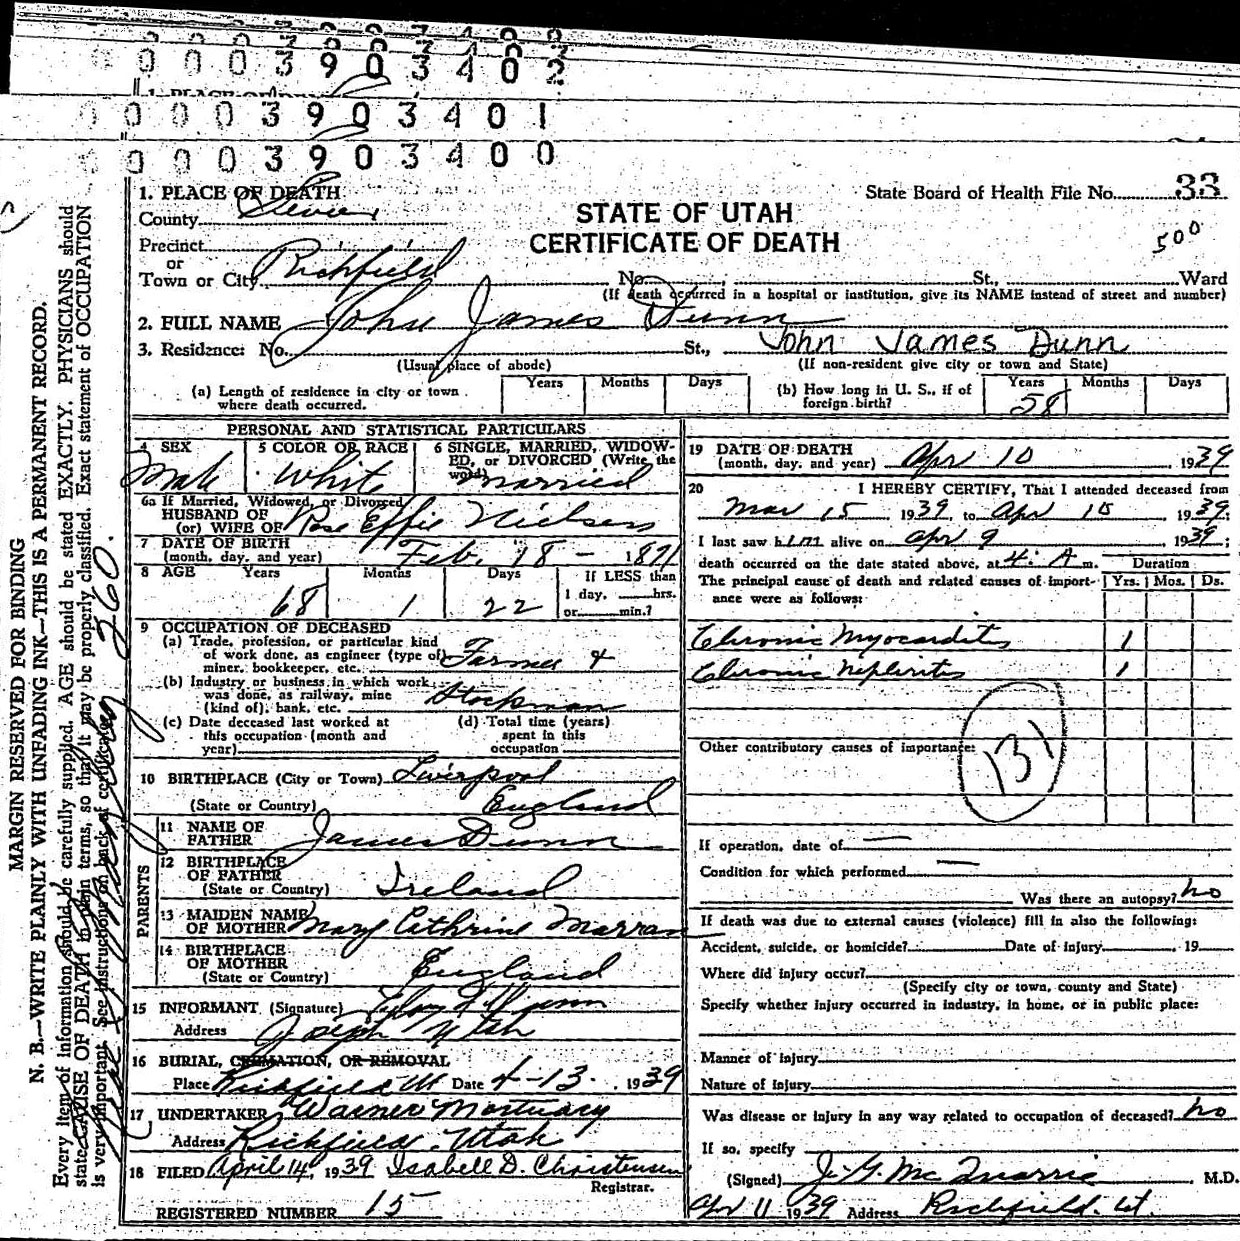 0 0 0 3 9 0 3 4 0 2
0 0 0 3 9 0 3 4 0 1
0 0 0 3 9 0 3 4 0 0
1. PLACE OF DEATH
County Sevier
Precinct
or
Town or City Richfield
State Board of Health File No. 33
500
STATE OF UTAH
CERTIFICATE OF DEATH
No. St., Ward
(If death occurred in a hospital or institution, give its NAME instead of street and number)
2. FULL NAME John James Dunn
3. Residence: No. St., John James Dunn
(Usual place of abode) (If non-resident give city or town and State)
(a) Length of residence in city or town where death occurred. Years Months Days
(b) How long in U. S., if of foreign birth? Years 58 Months Days
PERSONAL AND STATISTICAL PARTICULARS
4 SEX Male
5 COLOR OR RACE White
6 SINGLE, MARRIED, WIDOWED, or DIVORCED (Write the word) Married
6a If Married, Widowed, or Divorced
HUSBAND OF
(or) WIFE OF Rose Effie Nielsen
7 DATE OF BIRTH
(month, day, and year) Feb. 18 - 1871
8 AGE Years 68 Months 1 Days 22 If LESS than
1 day, hrs.
or min.?
9 OCCUPATION OF DECEASED
(a) Trade, profession, or particular kind
of work done, as engineer (type of)
miner, bookkeeper, etc. Farmer &
(b) Industry or business in which work
was done, as railway, mine
(kind of), bank, etc. Stockman
(c) Date deceased last worked at
this occupation (month and
year)
(d) Total time (years)
spent in this
occupation
10 BIRTHPLACE (City or Town) Liverpool
(State or Country) England
PARENTS
11 NAME OF
FATHER James Dunn
12 BIRTHPLACE
OF FATHER
(State or Country) Ireland
13 MAIDEN NAME
OF MOTHER Mary Cathrine Marran
14 BIRTHPLACE
OF MOTHER
(State or Country) England
15 INFORMANT (Signature) Dunn
Address Joseph Utah
16 BURIAL, CREMATION, OR REMOVAL
Place Richfield Ut Date 4-13 1939
17 UNDERTAKER Warner Mortuary
Address Richfield, Utah
18 FILED April 14, 1939 Isabell D. Christensen
Registrar.
REGISTERED NUMBER 15
19 DATE OF DEATH
(month, day, and year) Apr 10, 1939
20 I HEREBY CERTIFY, That I attended deceased from
Mar 15, 1939, to Apr 10, 1939;
I last saw him alive on Apr 9 1939;
death occurred on the date stated above, at 4: A m.
Duration
The principal cause of death and related causes of importance were as follows: Yrs. Mos. Ds.
Chronic Myocarditis 1
Chronic Nephritis 1
131
Other contributory causes of importance:
If operation, date of —
Condition for which performed —
Was there an autopsy? no
If death was due to external causes (violence) fill in also the following:
Accident, suicide, or homicide? Date of injury, 19
Where did injury occur?
(Specify city or town, county and State)
Specify whether injury occurred in industry, in home, or in public place:
Manner of injury
Nature of injury
Was disease or injury in any way related to occupation of deceased? no
If so, specify
(Signed) J. G. McQuarrie, M.D.
Apr 11 1939 Address Richfield. Ut.
MARGIN RESERVED FOR BINDING
N. B.—WRITE PLAINLY WITH UNFADING INK—THIS IS A PERMANENT RECORD.
Every item of information should be carefully supplied. AGE should be stated EXACTLY. PHYSICIANS should
state CAUSE OF DEATH in plain terms, so that it may be properly classified. Exact statement of OCCUPATION
is very important. See instructions on back of certificate.
360.